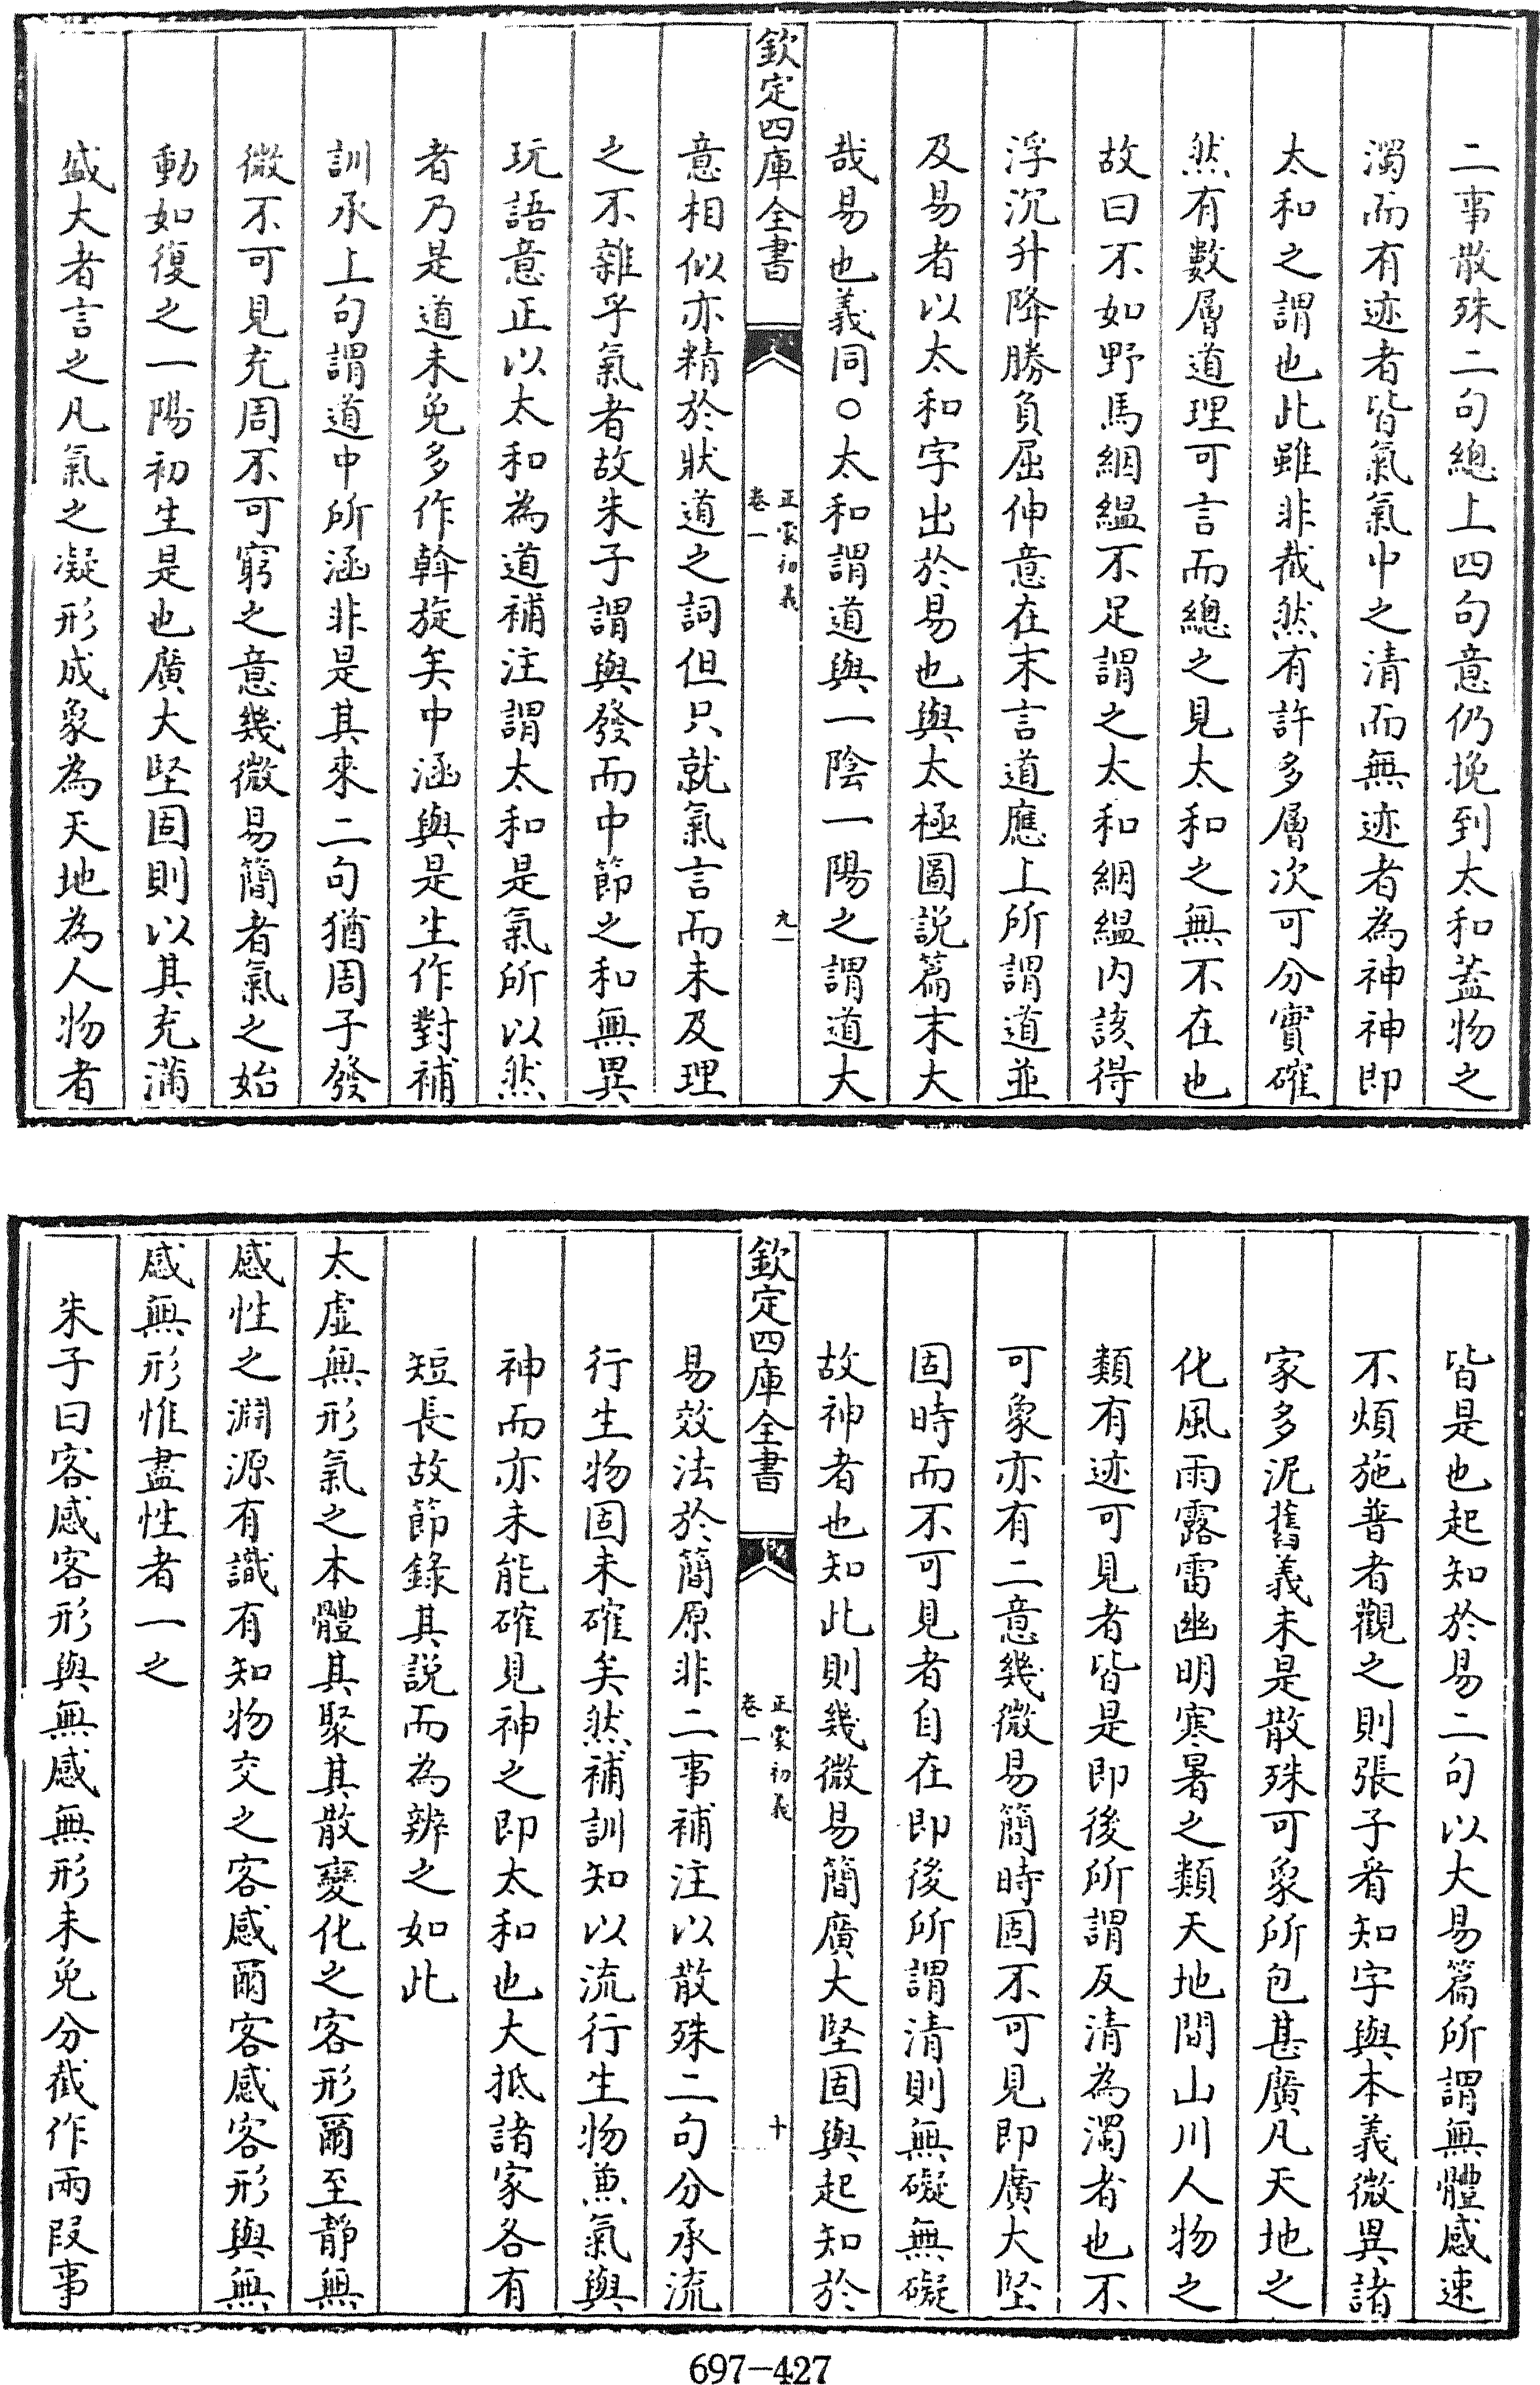 二事散殊二句總上四句意仍挽到太和葢物之
濁而有迹者皆氣氣中之清而無迹者為神神即
太和之謂也此雖非截然有許多層次可分實確
然有數層道理可言而總之見太和之無不在也
故曰不如野馬絪緼不足謂之太和絪緼内該得
浮沉升降勝負屈伸意在末言道應上所謂道並
及易者以太和字出於易也與太極圖説篇末大
哉易也義同○太和謂道與一陰一陽之謂道大
欽定四庫全書
正蒙初義
卷一
九
意相似亦精於狀道之詞但只就氣言而未及理
之不雜乎氣者故朱子謂與發而中節之和無異
玩語意正以太和為道補注謂太和是氣所以然
者乃是道未免多作斡旋矣中涵與是生作對補
訓承上句謂道中所涵非是其來二句猶周子發
微不可見充周不可窮之意幾微易簡者氣之始
動如復之一陽初生是也廣大堅固則以其充滿
盛大者言之凡氣之凝形成象為天地為人物者
皆是也起知於易二句以大易篇所謂無體感速
不煩施普者觀之則張子看知字與本義微異諸
家多泥舊義未是散殊可象所包甚廣凡天地之
化風雨露雷幽明寒暑之類天地間山川人物之
類有迹可見者皆是即後所謂反清為濁者也不
可象亦有二意幾微易簡時固不可見即廣大堅
固時而不可見者自在即後所謂清則無礙無礙
故神者也知此則幾微易簡廣大堅固與起知於
欽定四庫全書
正蒙初義
卷一
十
易效法於簡原非二事補注以散殊二句分承流
行生物固未確矣然補訓知以流行生物兼氣與
神而亦未能確見神之即太和也大抵諸家各有
短長故節錄其説而為辨之如此
太虛無形氣之本體其聚其散變化之客形爾至靜無
感性之淵源有識有知物交之客感爾客感客形與無
感無形惟盡性者一之
朱子曰客感客形與無感無形未免分截作兩段事
697-427